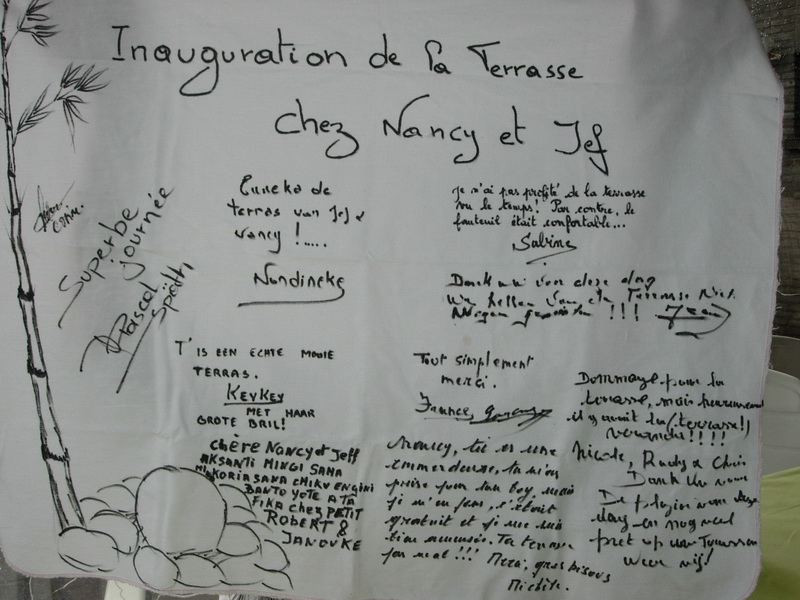 Inauguration de la Terrasse
chez Nancy et Jef
Superbe
journée
Pascal
Späth
Euneke de
terras van Jef &
Nancy !.....
Nondineke
Je n'ai pas profité de la terrasse
vu le temps! Par contre, le
fauteuil était confortable...
Sabine
Dank u voor deze dag
We hebben van de Terrasse niet
mogen genieten !!!
T'IS EEN ECHTE MOOIE
TERRAS.
KEYKEY
MET HAAR
GROTE BRIL!
Tout simplement
merci.
France,
Dommage pour la
terrasse, mais heureusement
il y avait la (terrasse!)
veranda!!!!
Nicole, Rudy & Chris
chère Nancy et Jeff
AKSANTI MINGI SANA
SANA CHIKU ENGINI
BANTO YOTE A TÂ
FIKA chez PETIT
ROBERT &
JANOUKE
Nancy, tu es une
emmerdeuse, tu m'as
prise pour ton boy, mais
je m'en fous, c'était
gratuit et je me suis
bien amusée. Ta terrasse
pas mal !!! Merci, gros bisous
Michèle.
Dank u voor
De plezier voor deze
dag en nog veel
pret op uw Terrasse